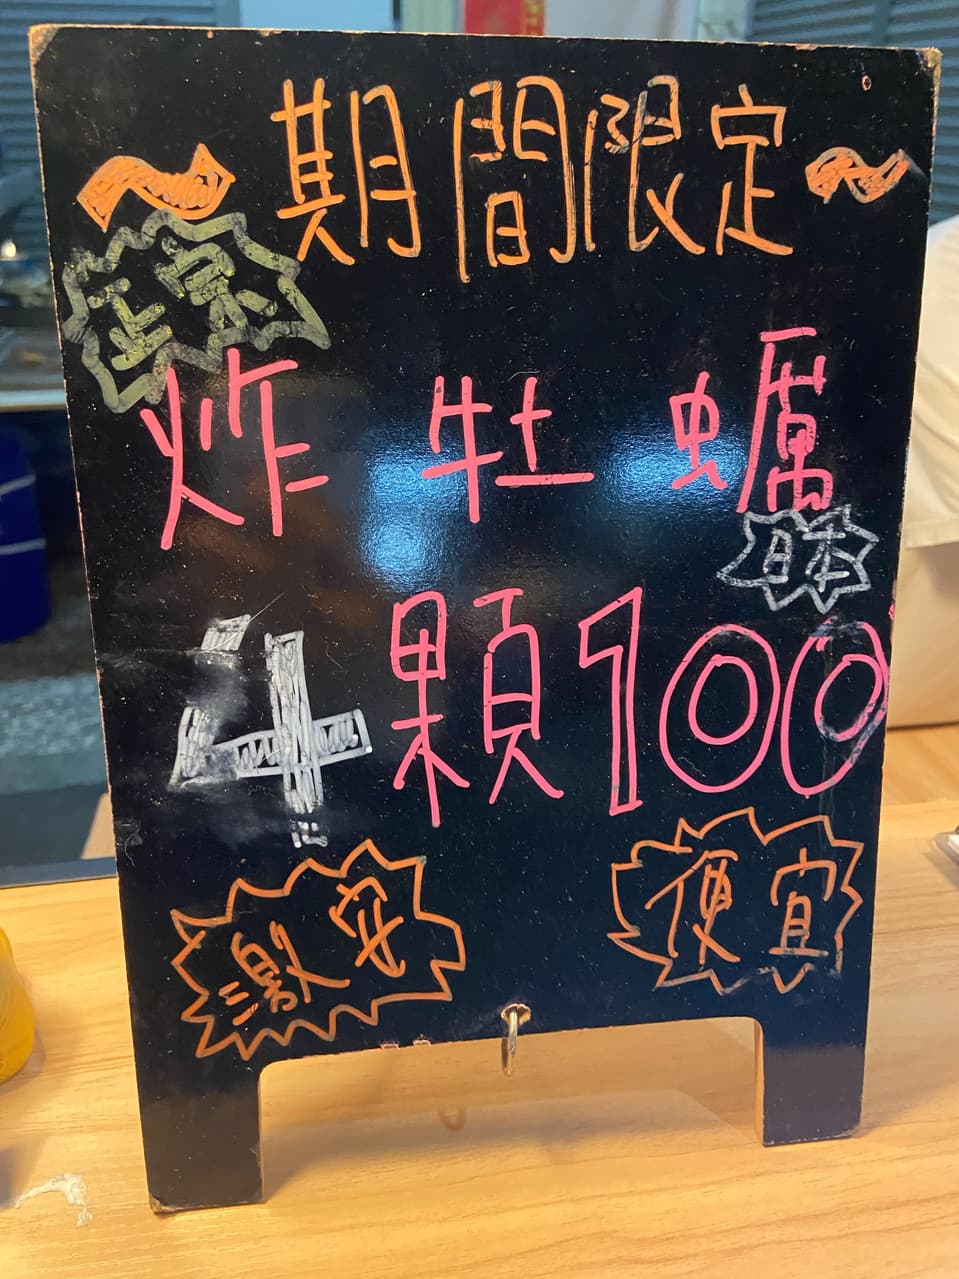 ～期間限定～
正宗
炸牡蠣
日本
4顆100
激安
便宜